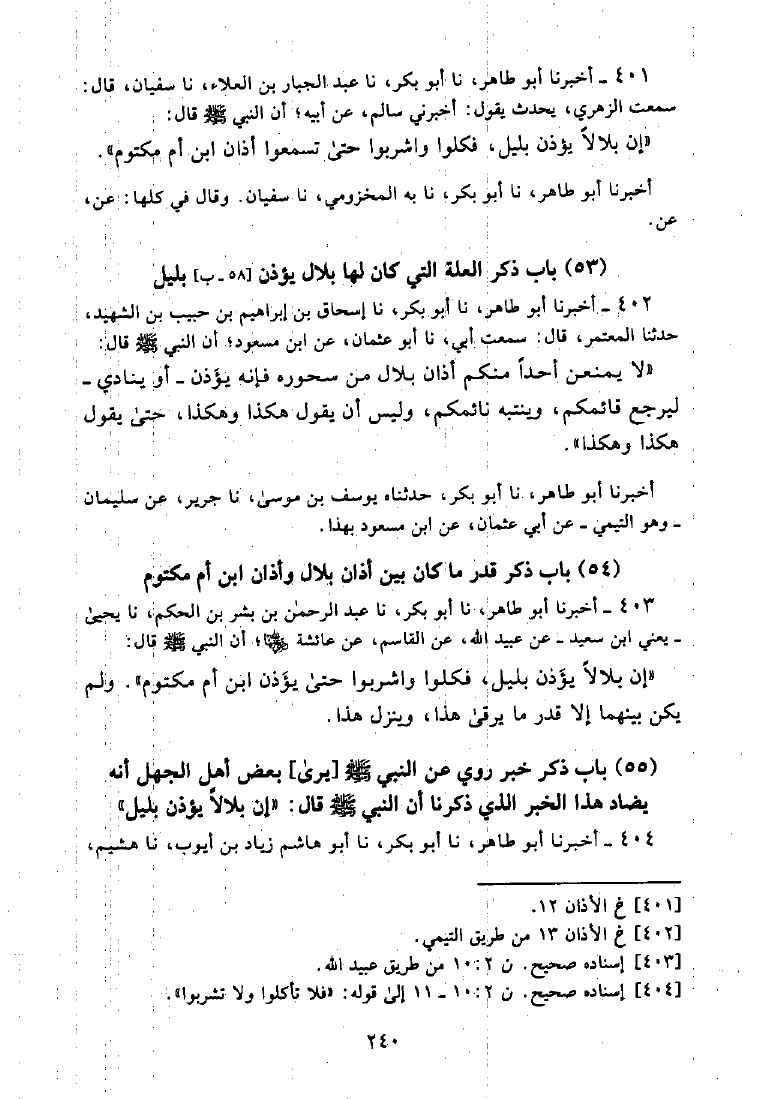 ٤٠١ ـ أخبرنا أبو طاهر، نا أبو بكر، نا عبد الجبار بن العلاء، نا سفيان، قال:
سمعت الزهري، يحدث يقول: أخبرني سالم، عن أبيه؛ أن النبي ﷺ قال:
«إن بلالاً يؤذن بليل، فكلوا واشربوا حتىٰ تسمعوا أذان ابن أم مكتوم».
أخبرنا أبو طاهر، نا أبو بكر، نا به المخزومي، نا سفيان. وقال في كلها: عن،
عن.
(٥٣) باب ذكر العلة التي كان لها بلال يؤذن [٥٨ـ ب] بليل
٤٠٢ ـ أخبرنا أبو طاهر، نا أبو بكر، نا إسحاق بن إبراهيم بن حبيب بن الشهيد،
حدثنا المعتمر، قال: سمعت أبي، نا أبو عثمان، عن ابن مسعود؛ أن النبي ﷺ قال:
«لا يمنعن أحداً منكم أذان بلال من سحوره فإنه يؤذن ـ أو ينادي ـ
ليرجع قائمكم، وينتبه نائمكم، وليس أن يقول هكذا وهكذا، حتىٰ يقول
هكذا وهكذا».
أخبرنا أبو طاهر، نا أبو بكر، حدثناه يوسف بن موسىٰ، نا جرير، عن سليمان
ـ وهو التيمي ـ عن أبي عثمان، عن ابن مسعود بهذا.
(٥٤) باب ذكر قدر ما كان بين أذان بلال وأذان ابن أم مكتوم
٤٠٣ ـ أخبرنا أبو طاهر، نا أبو بكر، نا عبد الرحمٰن بن بشر بن الحكم، نا يحيىٰ
ـ يعني ابن سعيد ـ عن عبيد الله، عن القاسم، عن عائشة رضي الله عنها؛ أن النبي ﷺ قال:
«إن بلالاً يؤَذن بليل، فكلوا واشربوا حتىٰ يؤَذن ابن أم مكتوم». ولم
يكن بينهما إلا قدر ما يرقىٰ هذا، وينزل هذا.
(٥٥) باب ذكر خبر روي عن النبي ﷺ [يرىٰ] بعض أهل الجهل أنه
يضاد هذا الخبر الذي ذكرنا أن النبي ﷺ قال: «إن بلالاً يؤذن بليل»
٤٠٤ ـ أخبرنا أبو طاهر، نا أبو بكر، نا أبو هاشم زياد بن أيوب، نا هشيم،
[٤٠١] خ الأذان ١٢.
[٤٠٢] خ الأذان ١٣ من طريق التيمي.
[٤٠٣] إسناده صحيح. ن ٢: ١٠ من طريق عبيد الله.
[٤٠٤] إسناده صحيح. ن ٢: ١٠ ـ ١١ إلىٰ قوله: «فلا تأكلوا ولا تشربوا».
٢٤٠